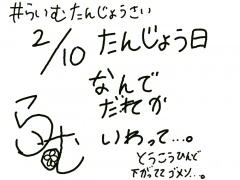 #らいむたんじょうさい
2/10 たんじょう日
なんで
だれか
いわって…。
らむ
とうこうひんど
下がっててゴメン…。